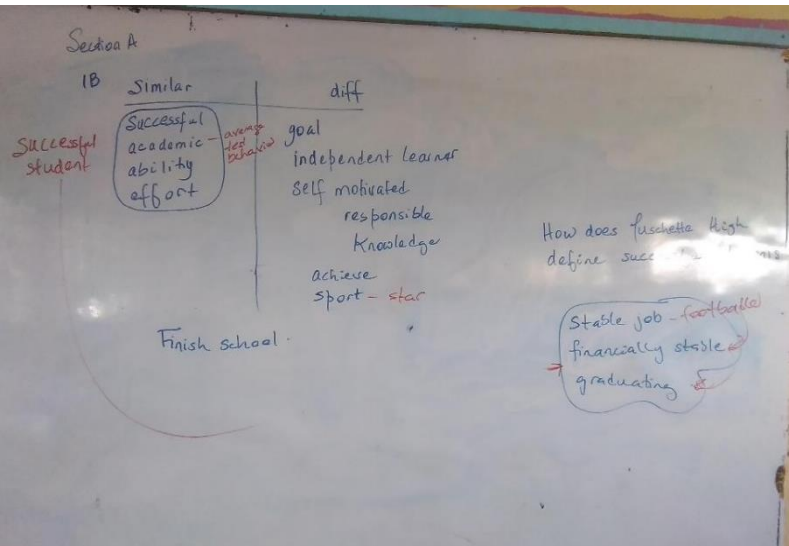 Section A
1B Similar diff
Successful student
Successful
academic - average test behavior
ability
effort
goal
independent learner
self motivated
responsible
Knowledge
achieve
sport - star
Finish school.
How does fuschetta High
define
Stable job - footballer
financially stable
graduating